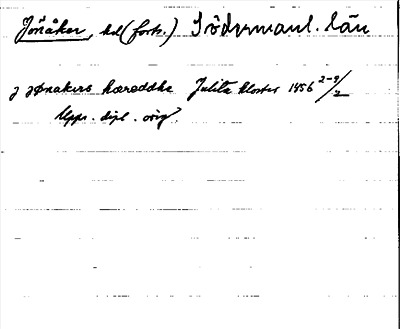 Jönåker, hd (forts.) Södermanl. län
J Jønakers hæreddhe Julita kloster 1456 2-9/2
Upps. dipl. orig.